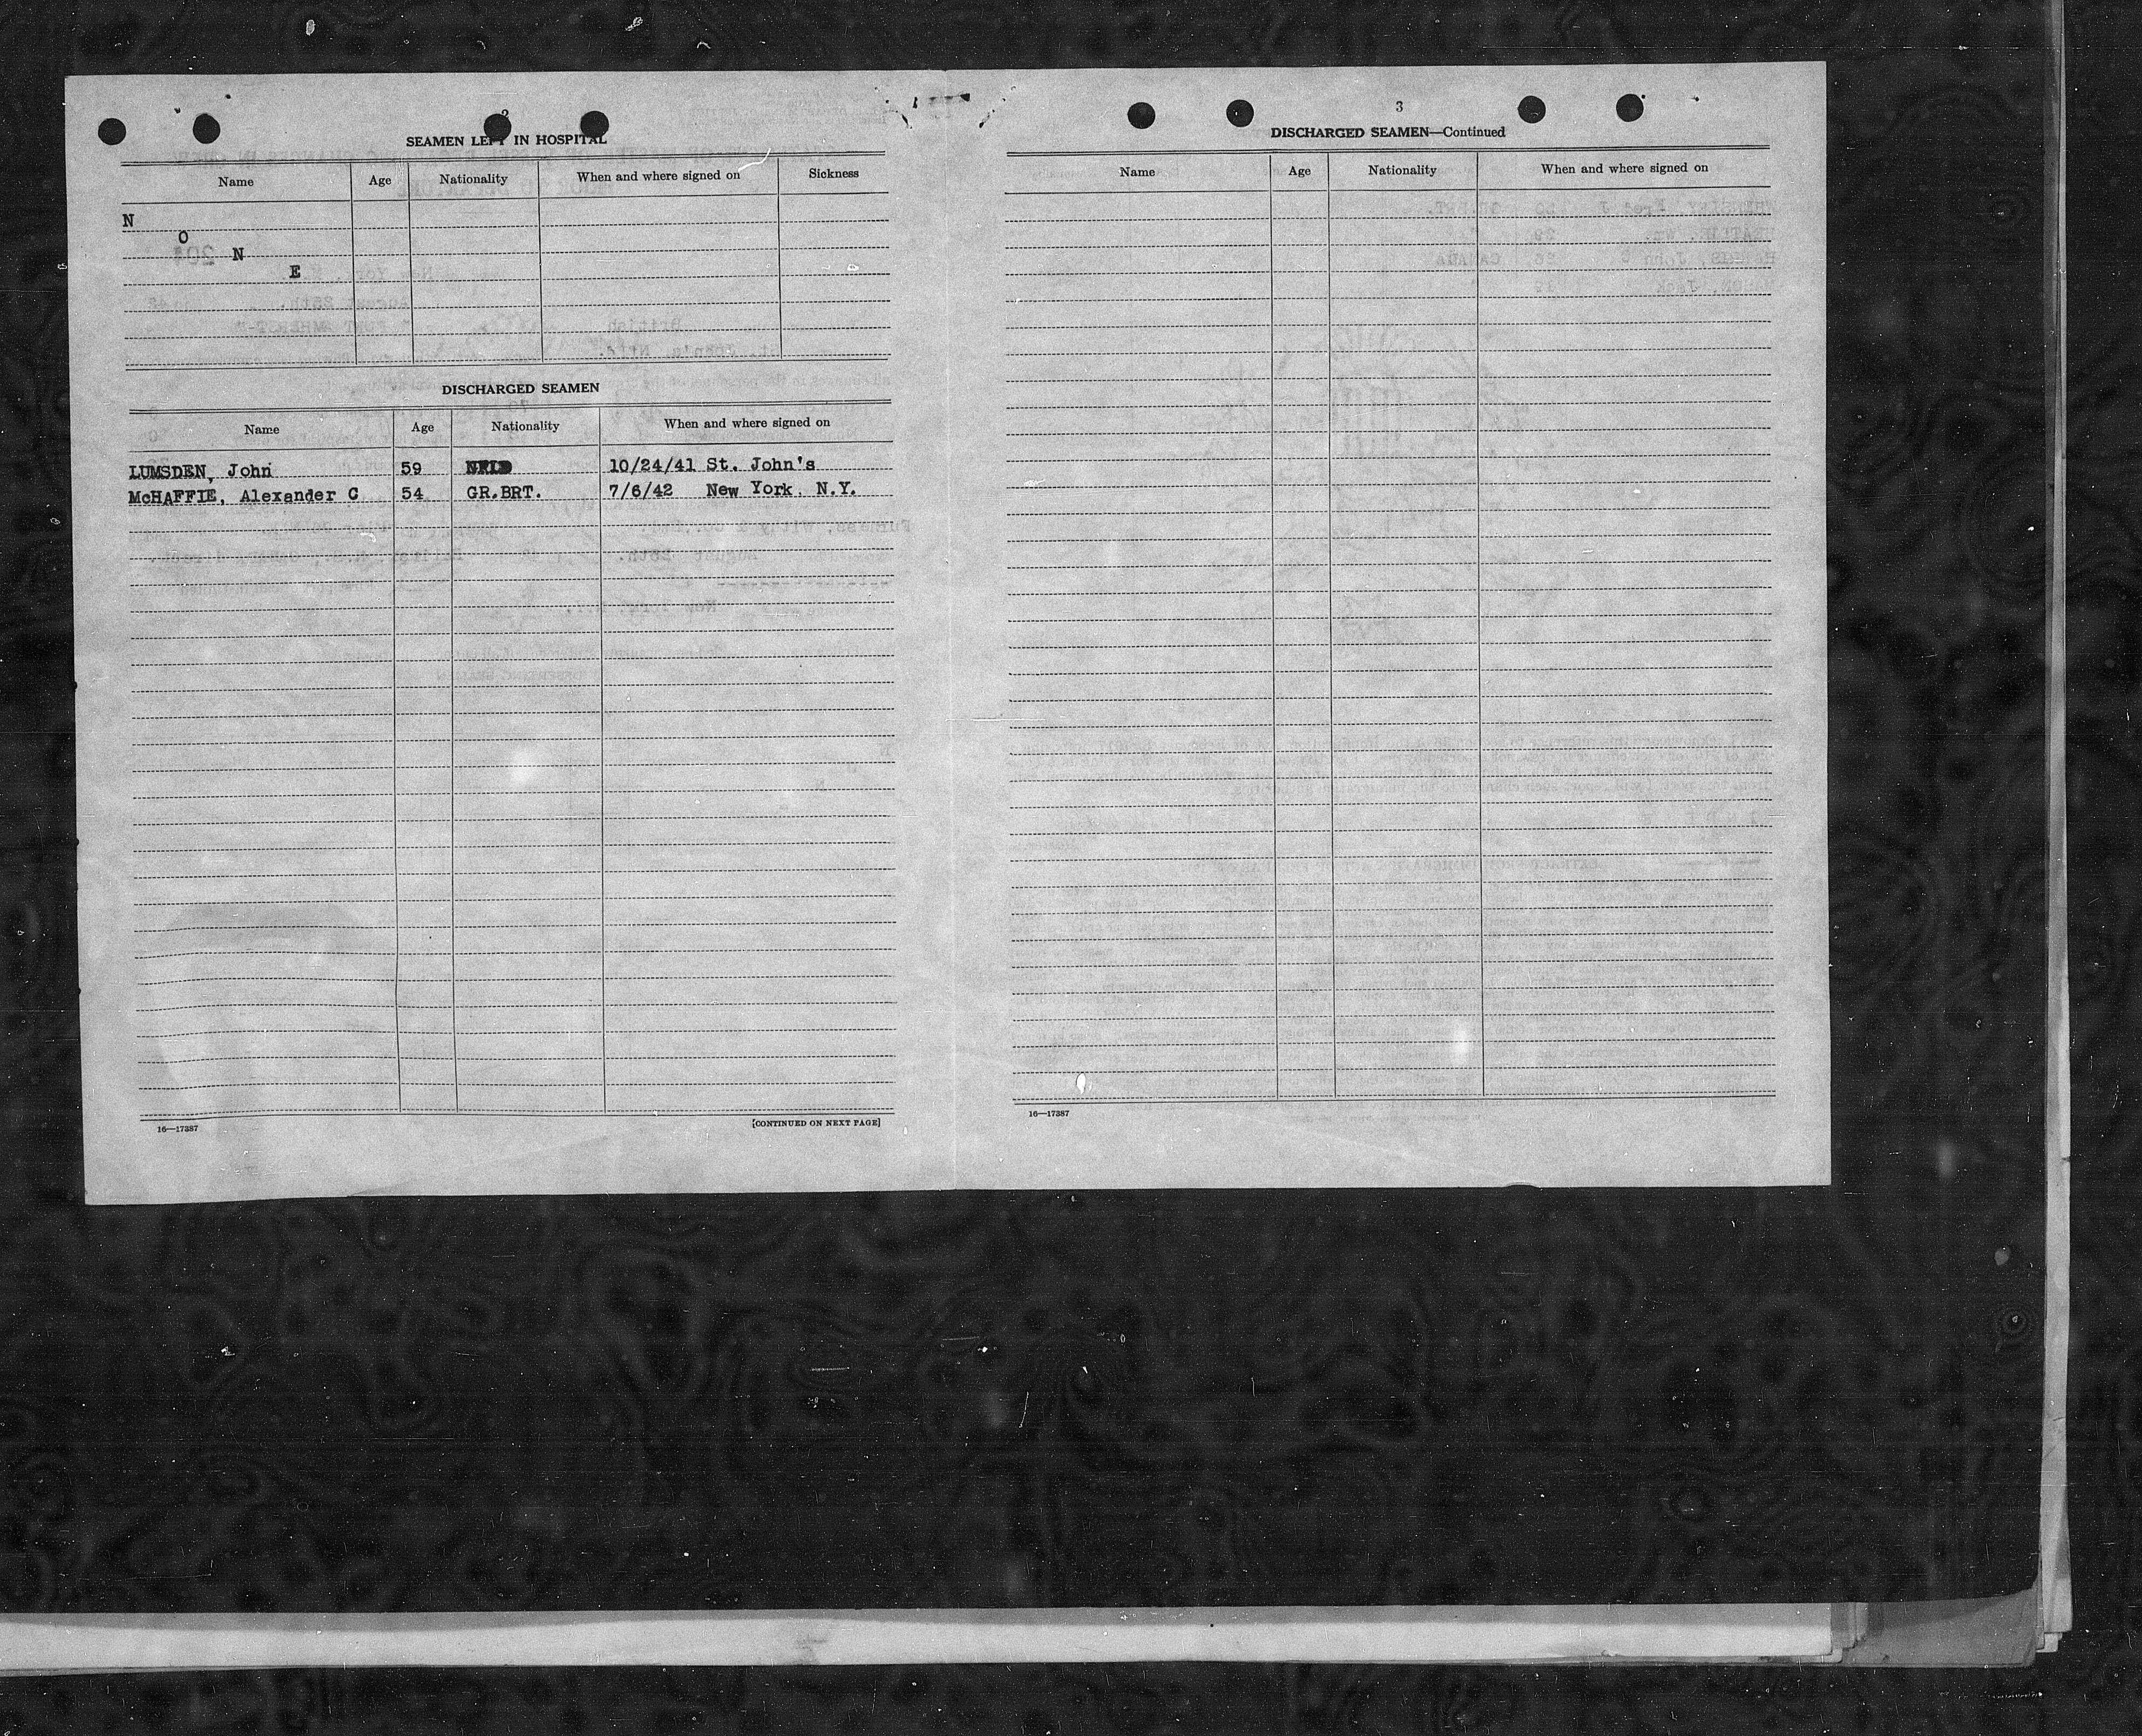 2
SEAMEN LEFT IN HOSPITAL
Name Age Nationality When and where signed on Sickness
N
O
N
E
DISCHARGED SEAMEN
Name Age Nationality When and where signed on
LUMSDEN, John 59 NFLD 10/24/41 St. John's
McHAFFIE, Alexander C 54 GR.BRT. 7/6/42 New York, N.Y.
16—17387
[CONTINUED ON NEXT PAGE]
3
DISCHARGED SEAMEN—Continued
Name Age Nationality When and where signed on
16—17387